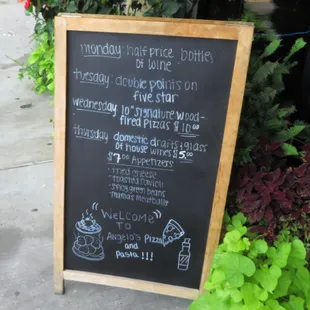 monday: half price bottles
of wine
tuesday: double points on
five star
wednesday: 10" signature wood-
fired pizzas $10.00
thursday: domestic drafts & glass
of house wines $5.00
$7.00 Appetizers
- fried cheese
- toasted ravioli
- spicy green beans
- mamas meatballs
"WELCOME"
TO
Angelo's Pizza
and
Pasta!!!